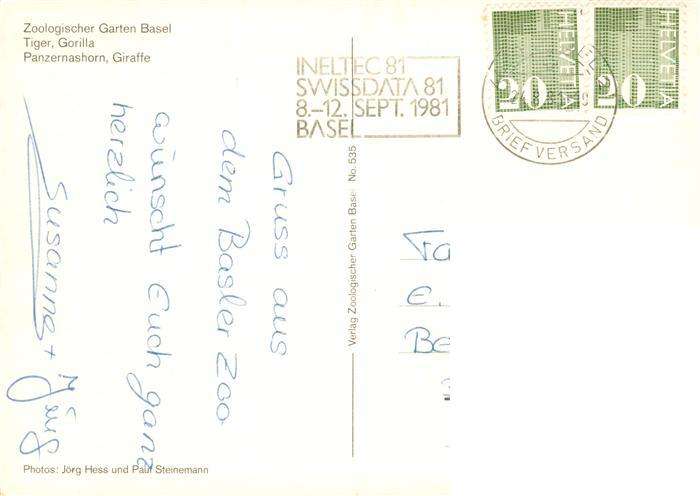 Zoologischer Garten Basel
Tiger, Gorilla
Panzernashorn, Giraffe
INELTEC 81
SWISSDATA 81
8.–12. SEPT. 1981
BASEL
HELVETIA
20
HELVETIA
20
BRIEFVERSAND
Gruss aus
dem Basler Zoo
wünscht Euch ganz
herzlich
Susanne + Jürg
Verlag Zoologischer Garten Basel No. 535
E.
Be
Photos: Jörg Hess und Paul Steinemann